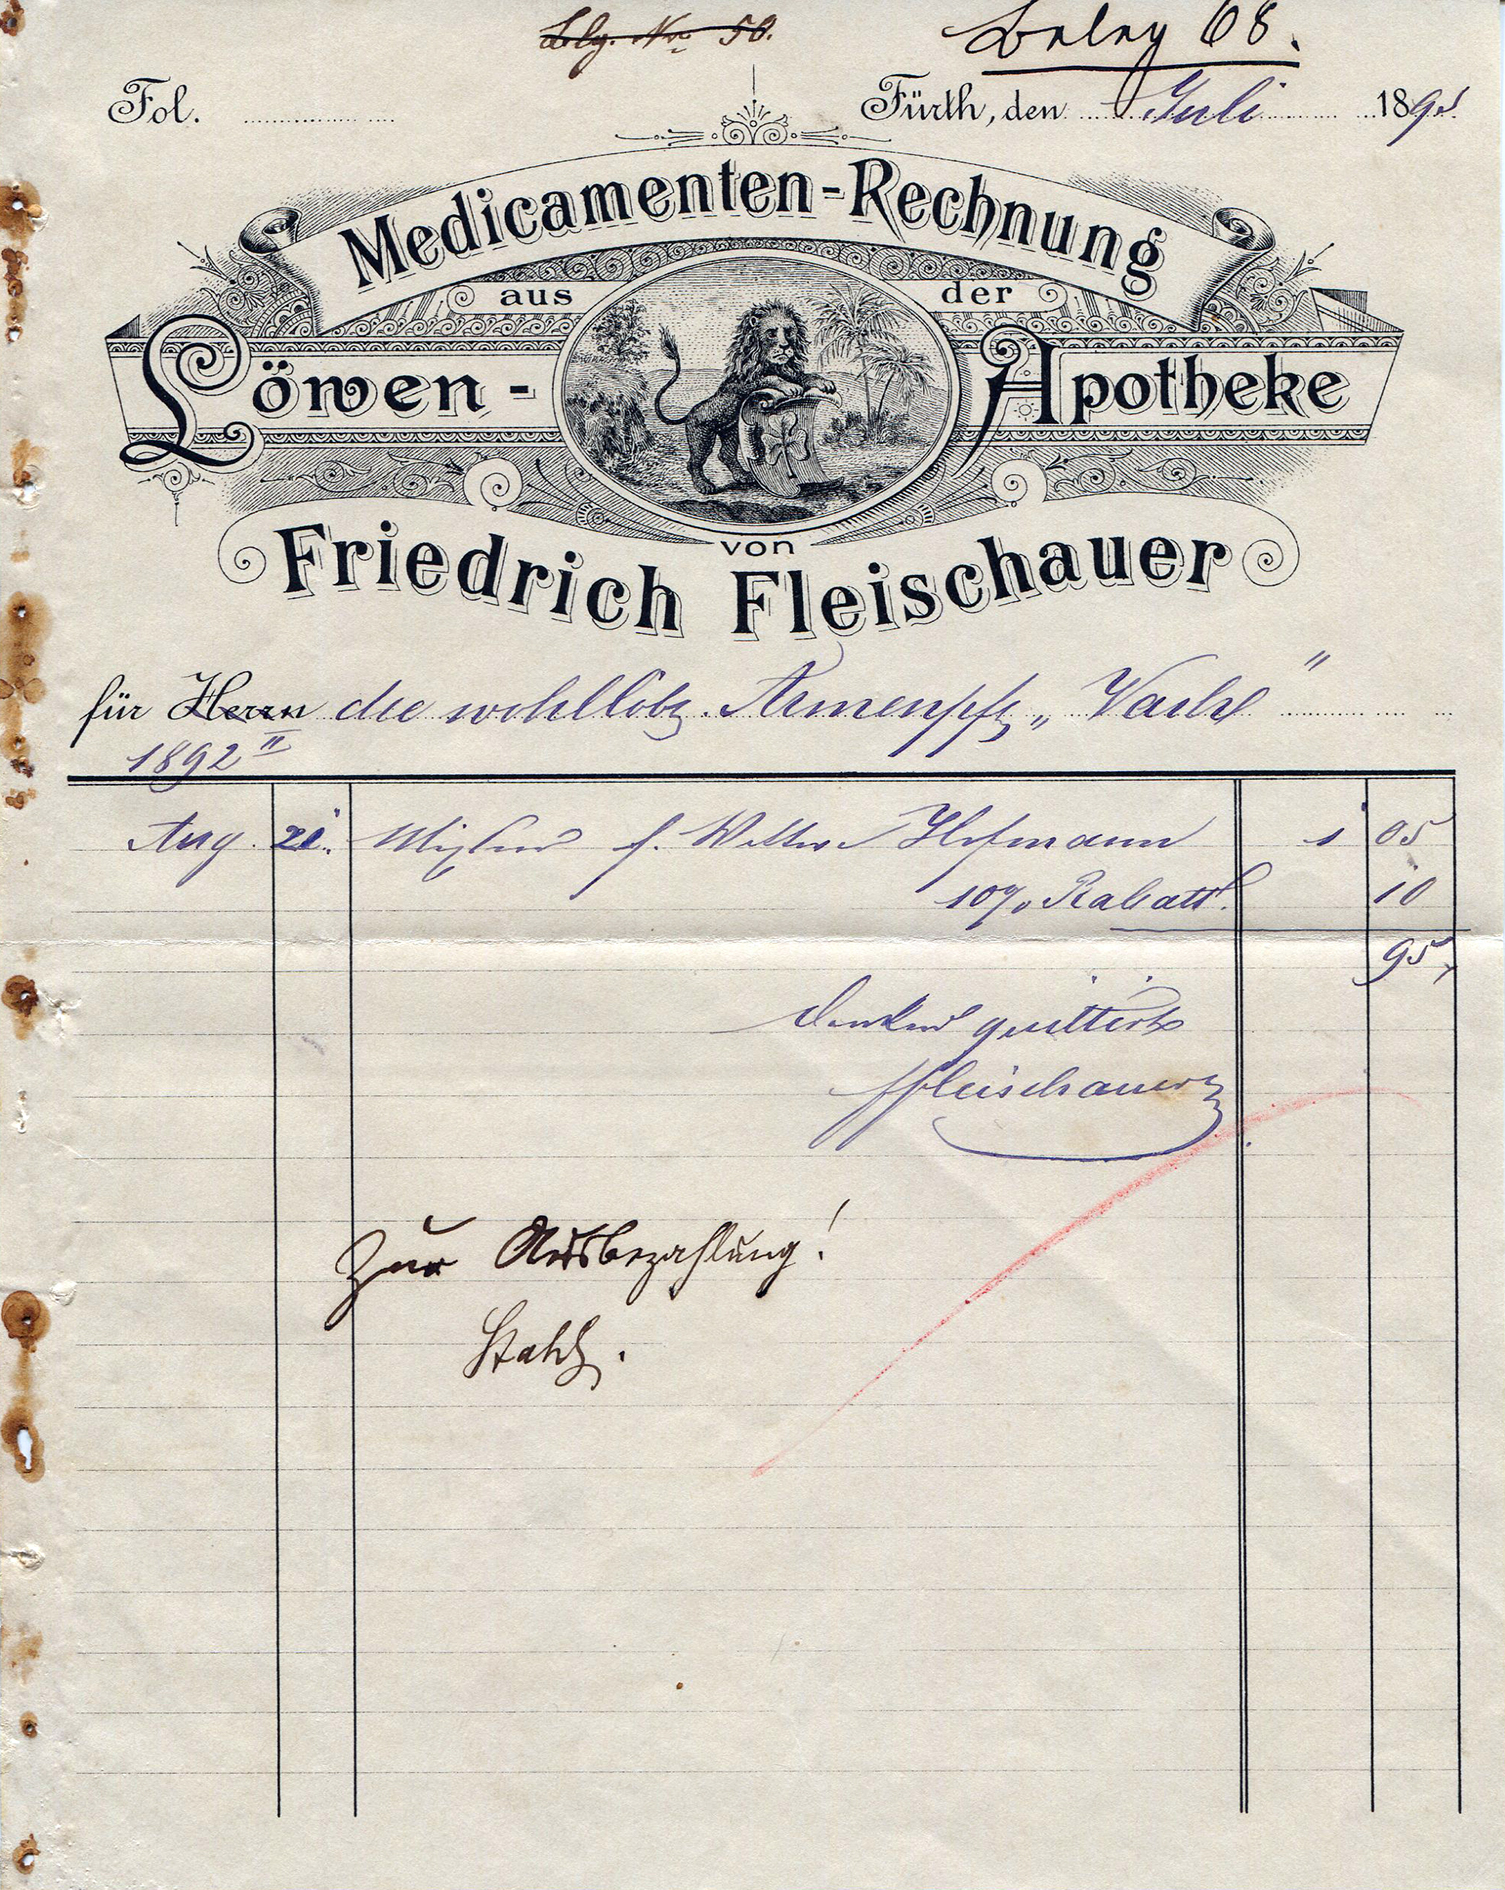 Blg. Nr. 50.
Beleg 68.
Fol.
Fürth, den Juli 189
Medicamenten-Rechnung
aus der
Löwen-Apotheke
von
Friedrich Fleischauer
für Herrn die wohllöbl. Armenpfl. „Vach"
1892 II
Aug. 21. Mixtur f. Wittwe Hofmann 1 05
10% Rabatt. 10
95
dankend quittirt
FFleischauer
Zur Ausbezahlung!
Stahl.